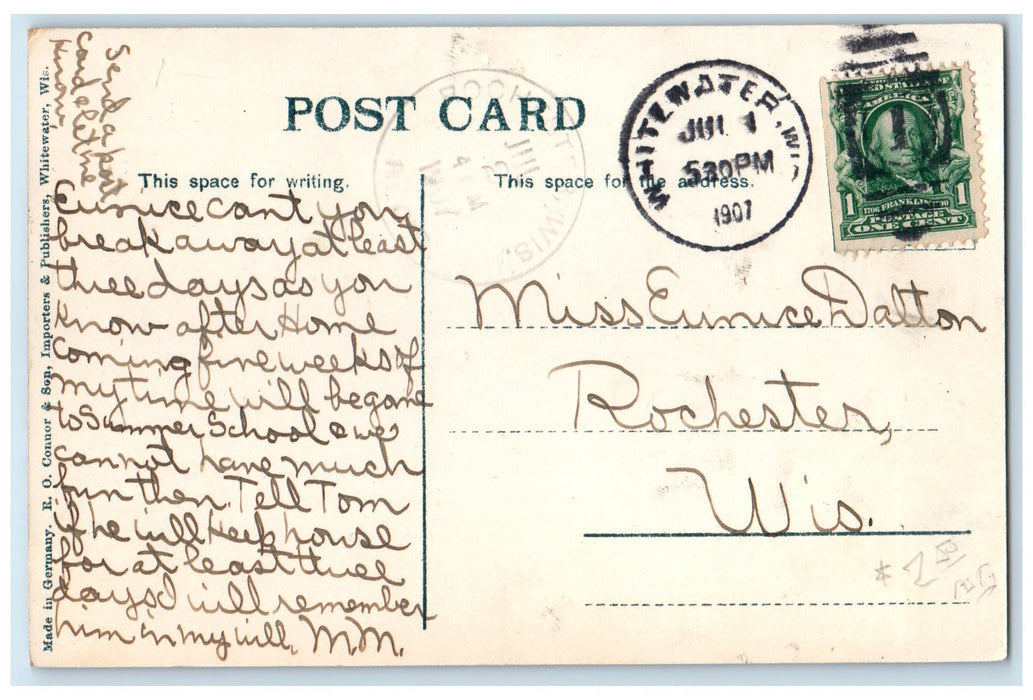 POST CARD
This space for writing.
This space for the address.
WHITEWATER, WIS.
5 30 PM
1907
UNITED STATES OF AMERICA
1 1706 FRANKLIN 1790 1
POSTAGE
ONE CENT
WIS.
Made in Germany. R. O. Connor & Son, Importers & Publishers, Whitewater, Wis.
Send a
card & let me
know
Eunice cant you
break away at least
three days as you
know after Home
coming five weeks of
my time will be gone
to Summer School & we
cannot have much
fun then. Tell Tom
if he will keep house
for at least three
days I will remember
him in my will. M.M.
Miss Eunice Dalton
Rochester,
Wis.